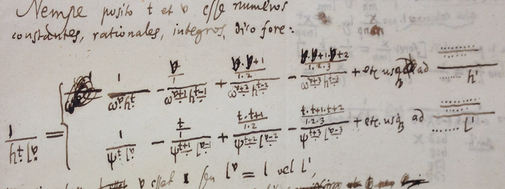 Nempe posito t et v esse numeros
constantes, rationales, integros, dico fore:
1/(h^t l^v) = { 1/(ω^v h^t) − (v/1)/(ω^(v+1) h^(t−1)) + (v.v+1/1.2)/(ω^(v+2) h^(t−2)) − (v.v+1.v+2/1.2.3)/(ω^(v+3) h^(t−3)) + etc. usque ad ....../h^1
1/(ψ^t l^v) − (t/1)/(ψ^(t+1) l^(v−1)) + (t.t+1/1.2)/(ψ^(t+2) l^(v−2)) − (t.t+1.t+2/1.2.3)/(ψ^(t+3) l^(v−3)) + etc. usque ad ....../l^1
esset 1 seu l^v = l vel l^1,